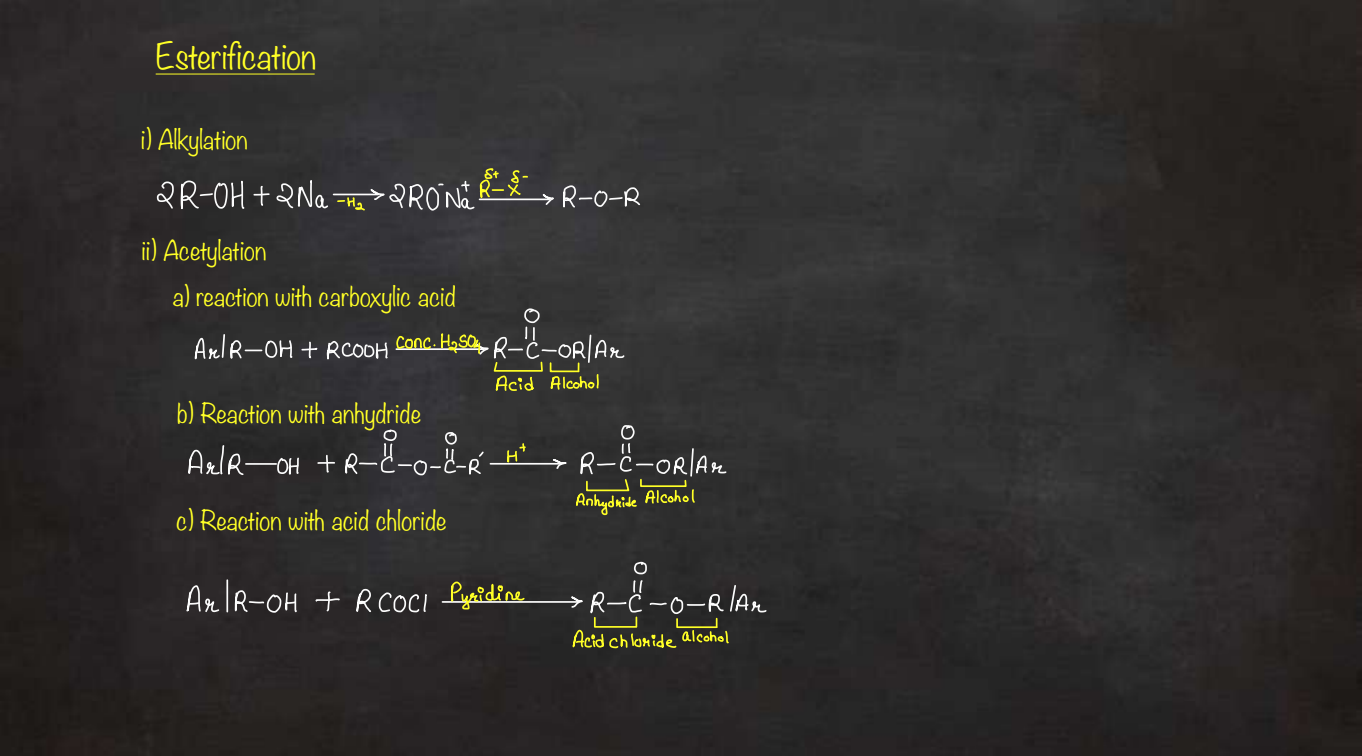 Esterification
i) Alkylation
2R-OH + 2Na —-H₂→ 2RO⁻Na⁺ —R^δ+-X^δ-→ R-O-R
ii) Acetylation
a) reaction with carboxylic acid
Ar/R-OH + RCOOH —Conc. H₂SO₄→ R-C(=O)-OR/Ar
Acid Alcohol
b) Reaction with anhydride
Ar/R-OH + R-C(=O)-O-C(=O)-R′ —H⁺→ R-C(=O)-OR/Ar
Anhydride Alcohol
c) Reaction with acid chloride
Ar/R-OH + RCOCl —Pyridine→ R-C(=O)-O-R/Ar
Acid chloride alcohol